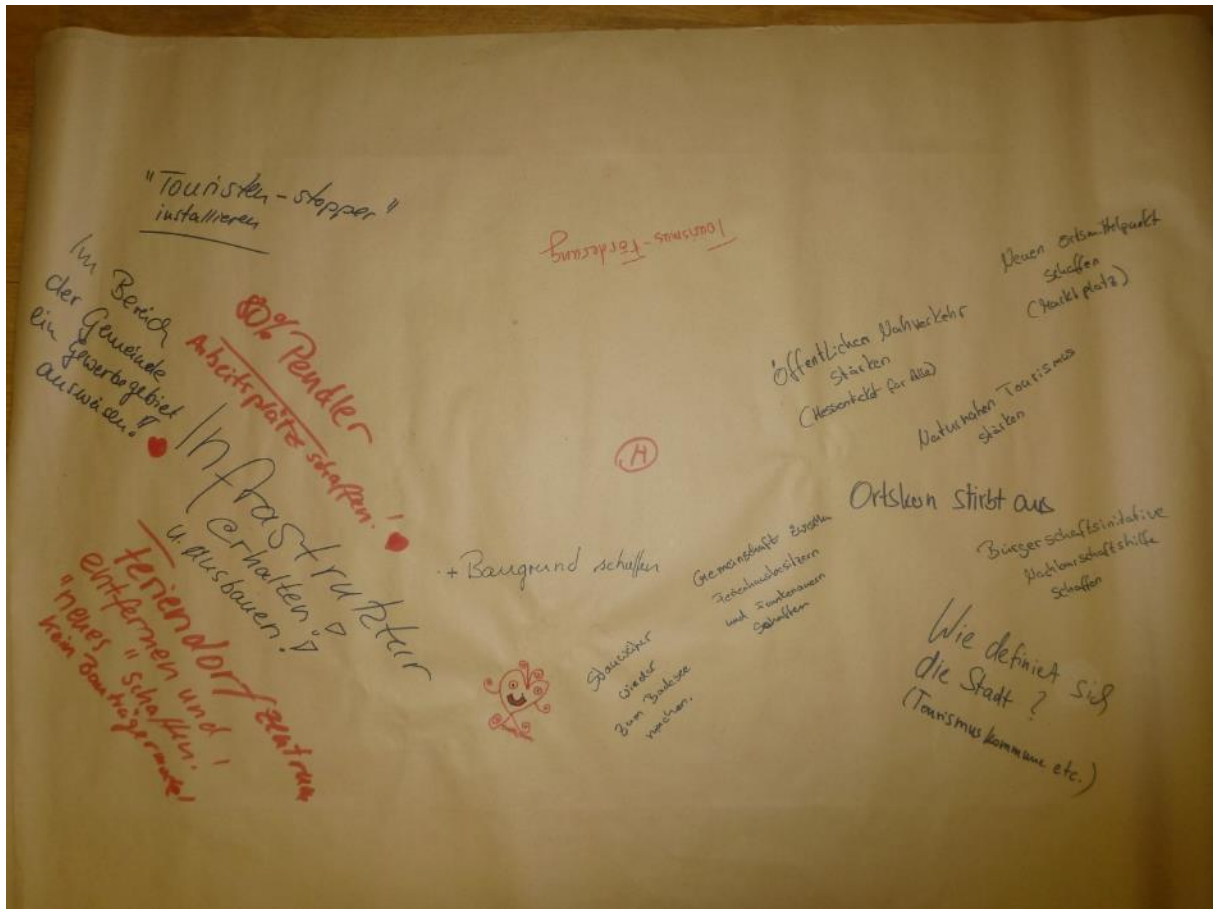 "Touristen-stopper"
installieren
Im Bereich
der Gemeinde
ein Gewerbegebiet
auswäsen!
80% Pendler
Arbeitsplätz schaffen!
Infrastruktur
erhalten!
u. ausbauen!
Feriendorf/zentrum
entfernen und
"neues" schaffen!
kein Bauträgermodel
Tourismus-Förderung
4.
+ Baugrund schaffen
wieder
zum Badesee
machen.
Gemeinschaft zwischen
Ferienhausbesitzern
und
schaffen
Öffentlichen Nahverkehr
stärken
(Hessenticket für Alle)
Neuen Ortsmittelpunkt
schaffen
(Marktplatz)
Naturnahen Tourismus
stärken
Ortskern stirbt aus
Bürgerschaftsinitative
Nachbarschaftshilfe
schaffen
Wie definiert sich
die Stadt?
(Tourismuskommune etc.)